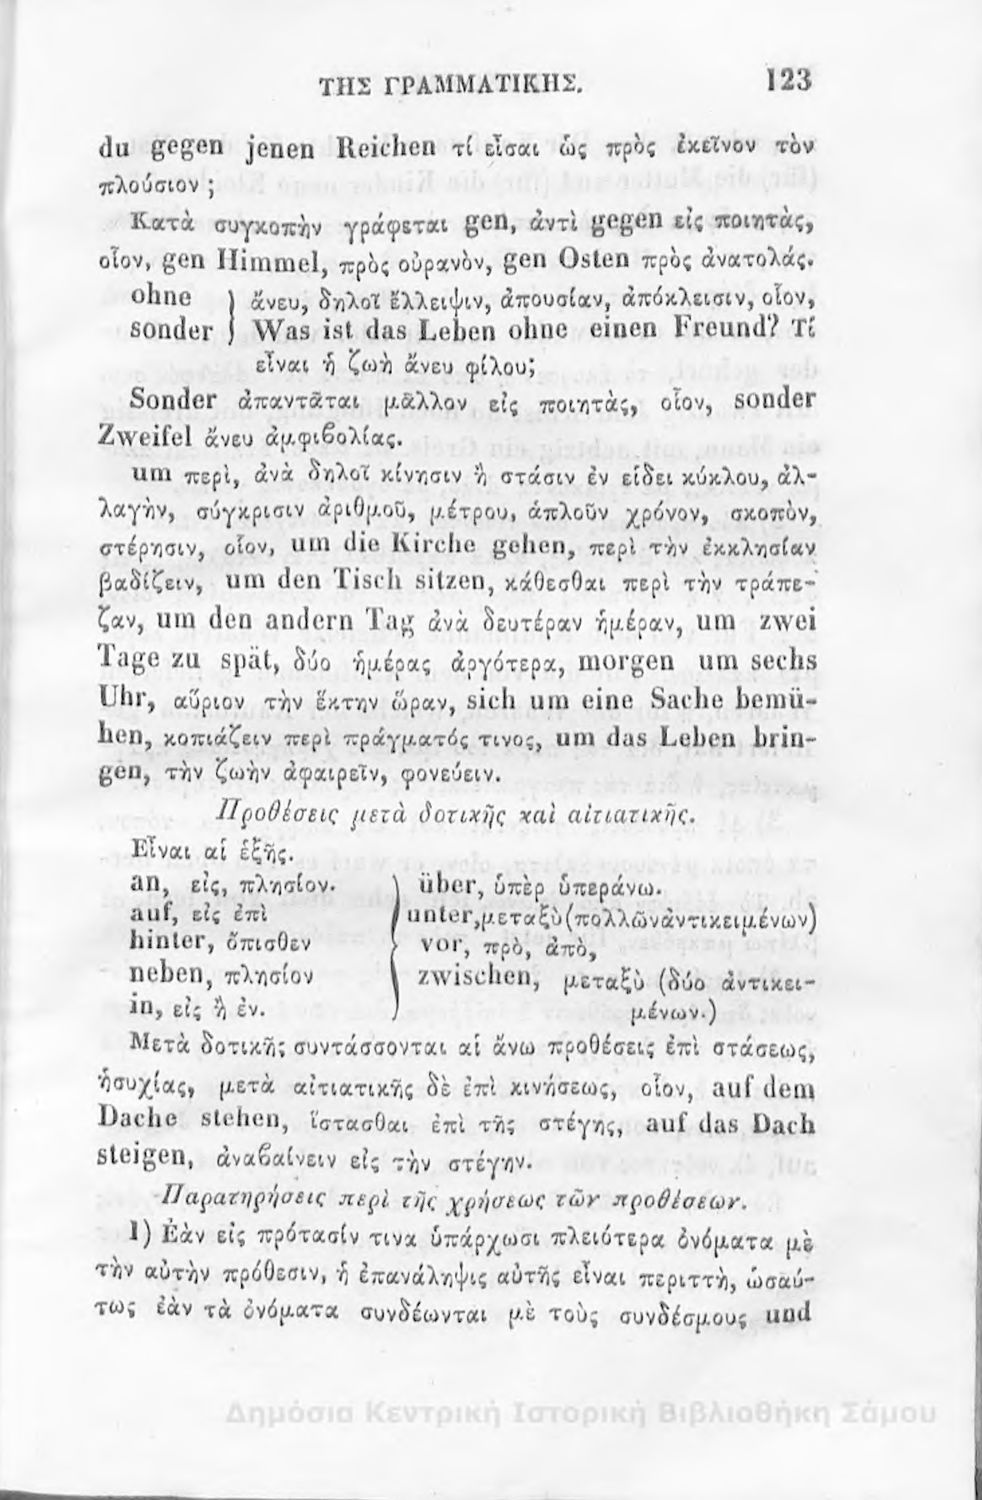 ΤΗΣ ΓΡΑΜΜΑΤΙΚΗΣ. 123
du gegen jenen Reichen τί εἶσαι ὡς πρὸς ἐκεῖνον τὸν
πλούσιον ;
Κατὰ συγκοπὴν γράφεται gen, ἀντὶ gegen εἰς ποιητὰς,
οἷον, gen Himmel, πρὸς οὐρανὸν, gen Osten πρὸς ἀνατολάς.
ohne } ἄνευ, δηλοῖ ἔλλειψιν, ἀπουσίαν, ἀπόκλεισιν, οἷον,
sonder } Was ist das Leben ohne einen Freund? Τί
εἶναι ἡ ζωὴ ἄνευ φίλου;
Sonder ἀπαντᾶται μᾶλλον εἰς ποιητὰς, οἷον, sonder
Zweifel ἄνευ ἀμφιβολίας.
um περὶ, ἀνὰ δηλοῖ κίνησιν ἢ στάσιν ἐν εἴδει κύκλου, ἀλ-
λαγὴν, σύγκρισιν ἀριθμοῦ, μέτρου, ἁπλοῦν χρόνον, σκοπὸν,
στέρησιν, οἷον, um die Kirche gehen, περὶ τὴν ἐκκλησίαν
βαδίζειν, um den Tisch sitzen, κάθεσθαι περὶ τὴν τράπε-
ζαν, um den andern Tag ἀνὰ δευτέραν ἡμέραν, um zwei
Tage zu spät, δύο ἡμέρας ἀργότερα, morgen um sechs
Uhr, αὔριον τὴν ἕκτην ὥραν, sich um eine Sache bemü-
hen, κοπιάζειν περὶ πράγματός τινος, um das Leben brin-
gen, τὴν ζωὴν ἀφαιρεῖν, φονεύειν.
Προθέσεις μετὰ δοτικῆς καὶ αἰτιατικῆς.
Εἶναι αἱ ἑξῆς.
an, εἰς, πλησίον. } über, ὑπὲρ ὑπεράνω.
auf, εἰς ἐπὶ unter, μεταξὺ (πολλῶν ἀντικειμένων)
hinter, ὄπισθεν vor, πρὸ, ἀπὸ,
neben, πλησίον zwischen, μεταξὺ (δύο ἀντικει-
in, εἰς ἢ ἐν. μένων.)
Μετὰ δοτικῆς συντάσσονται αἱ ἄνω προθέσεις ἐπὶ στάσεως,
ἡσυχίας, μετὰ αἰτιατικῆς δὲ ἐπὶ κινήσεως, οἷον, auf dem
Dache stehen, ἵστασθαι ἐπὶ τῆς στέγης, auf das Dach
steigen, ἀναβαίνειν εἰς τὴν στέγην.
Παρατηρήσεις περὶ τῆς χρήσεως τῶν προθέσεων.
1) Ἐὰν εἰς πρότασίν τινα ὑπάρχωσι πλειότερα ὀνόματα μὲ
τὴν αὐτὴν πρόθεσιν, ἡ ἐπανάληψις αὐτῆς εἶναι περιττὴ, ὡσαύ-
τως ἐὰν τὰ ὀνόματα συνδέωνται μὲ τοὺς συνδέσμους und
Δημόσια Κεντρική Ιστορική Βιβλιοθήκη Σάμου